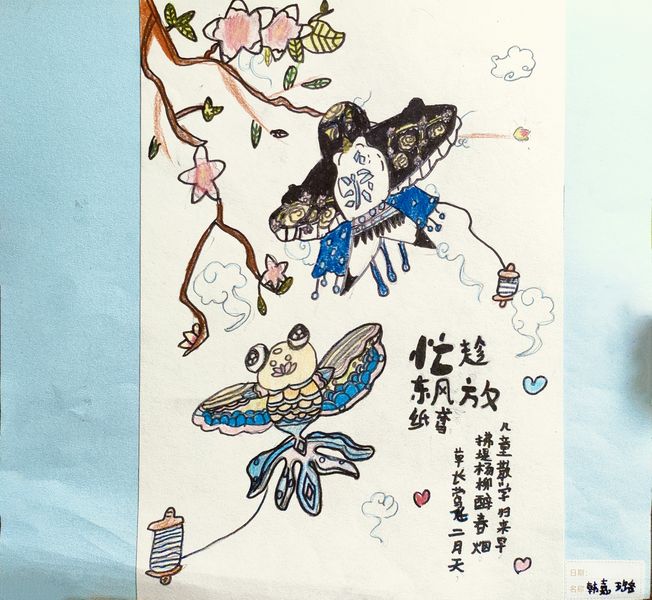 忙趁
东风放
纸鸢
草长莺飞二月天
拂堤杨柳醉春烟
儿童散学归来早
日期:
名称: 韩嘉